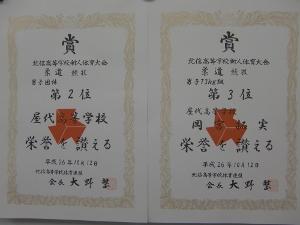 賞
北信高等学校新人体育大会
柔道 競技
男子団体
第2位
屋代高等学校
栄誉を讃える
平成26年10月12日
北信高等学校体育連盟
会長 大野 繁
賞
北信高等学校新人体育大会
柔道 競技
男子73kg級
第3位
屋代高等学校
岡 実
栄誉を讃える
平成26年10月12日
北信高等学校体育連盟
会長 大野 繁